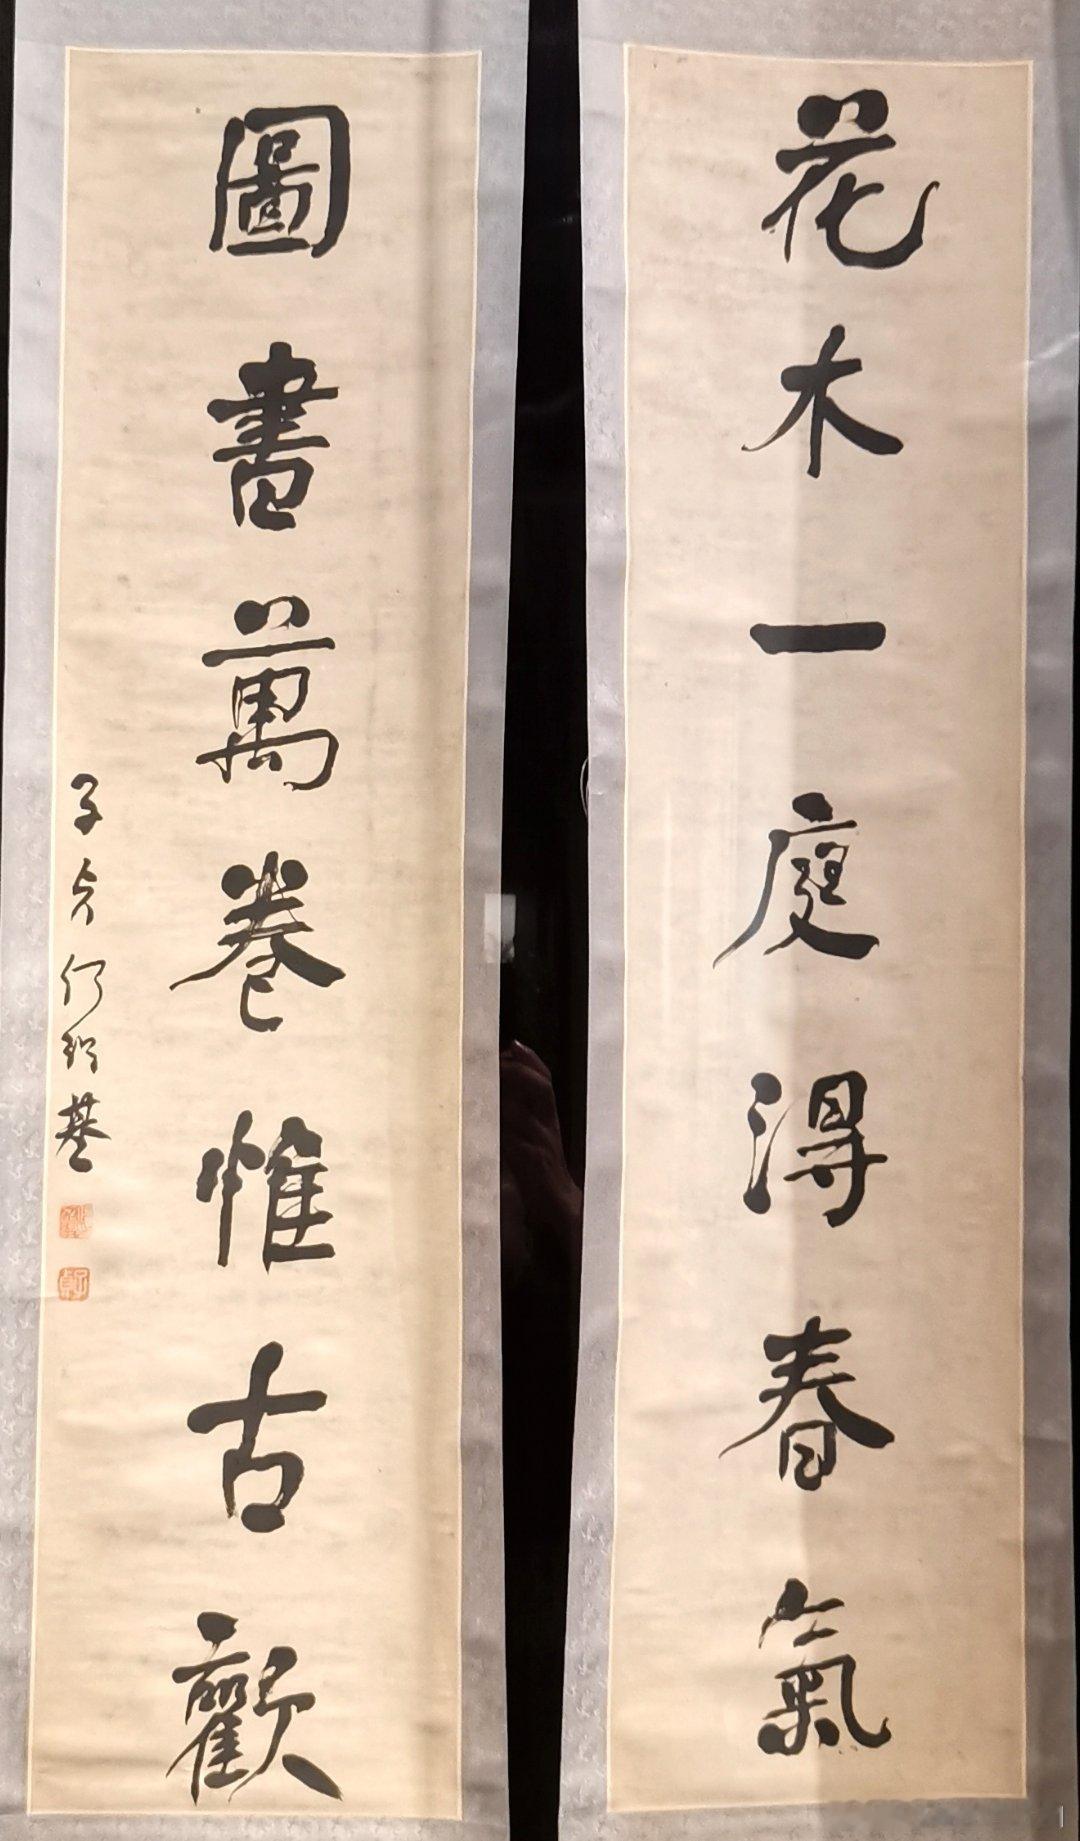 花木一庭得春氣
圖書萬卷惟古歡
子貞何紹基